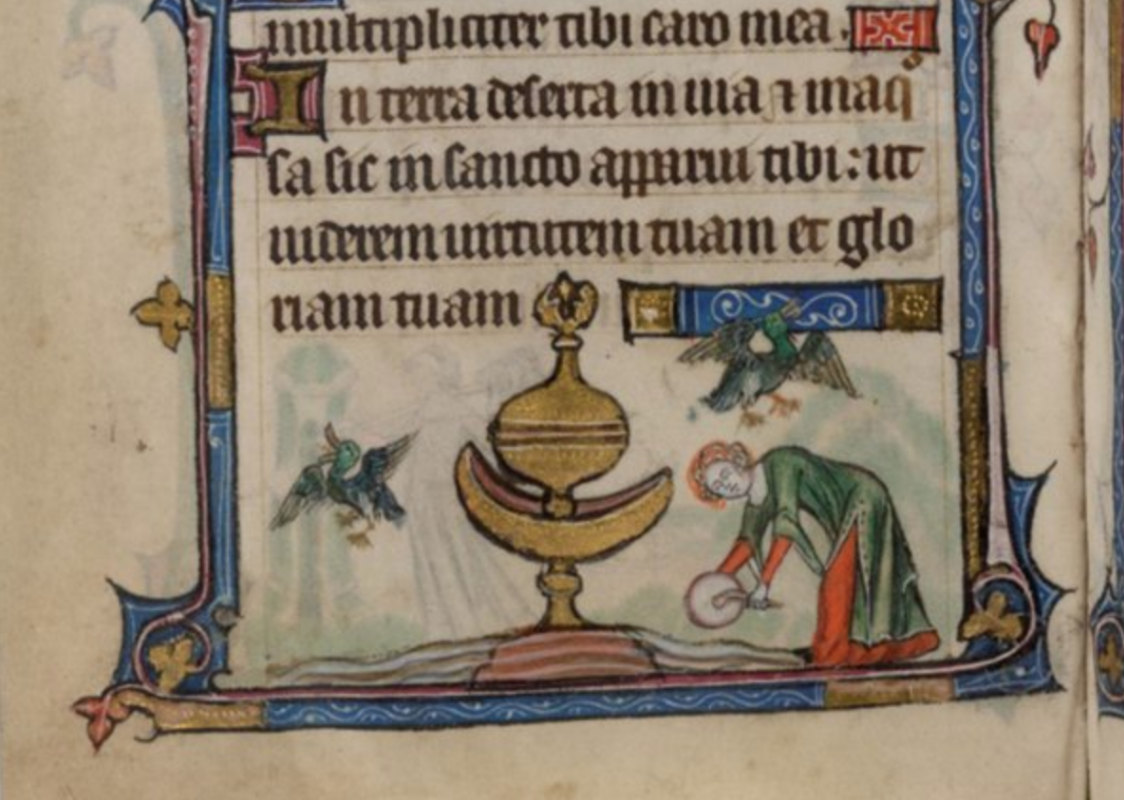 multipliciter tibi caro mea.
In terra deserta inuia ⁊ inaq
sa sic in sancto apparui tibi: ut
uiderem uirtutem tuam et glo
riam tuam